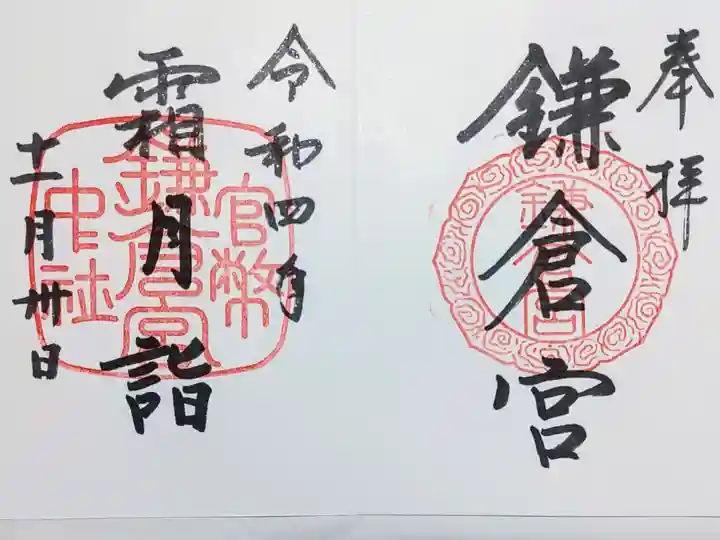 奉拝
鎌倉宮
鎌倉宮
令和四年
霜月詣
十一月卅日
官幣
鎌倉宮
中社